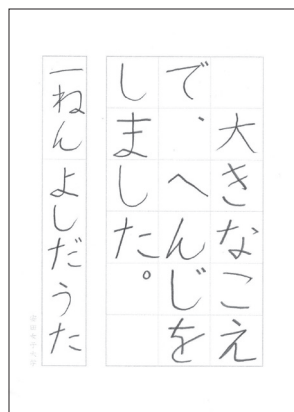 大きなこえ
で、へんじを
しました。
一ねん よしだうた